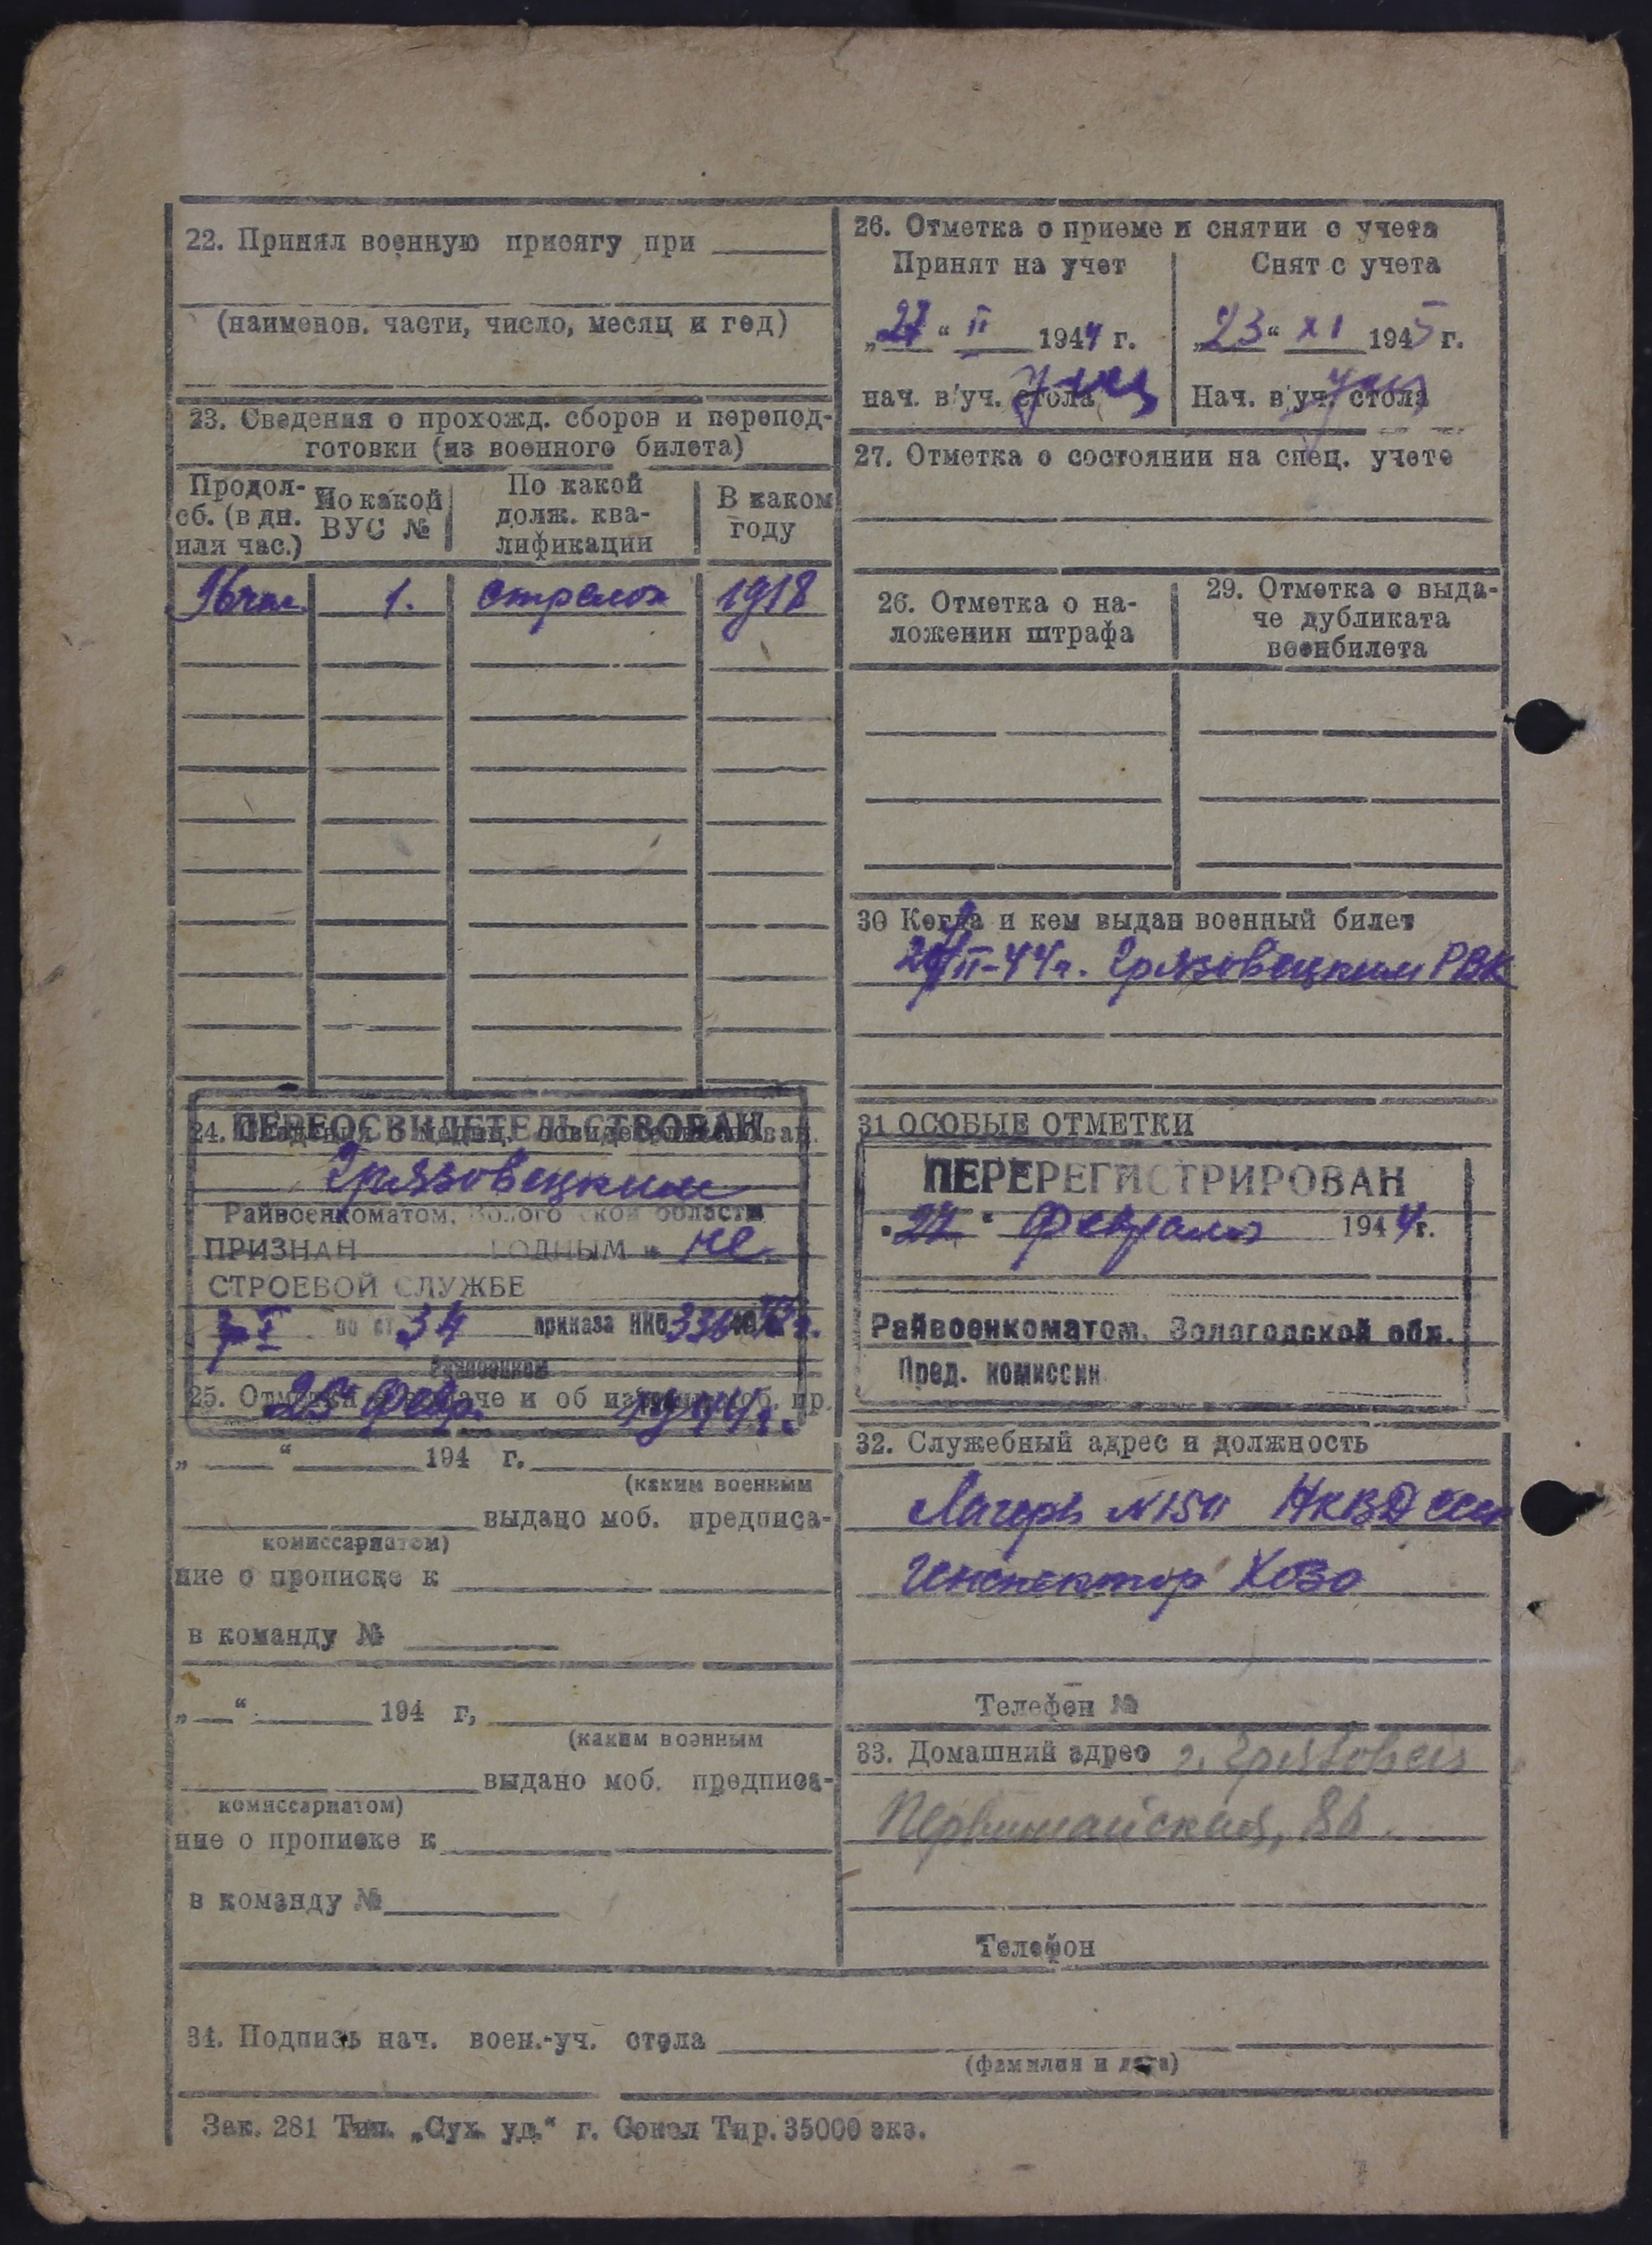 22. Принял военную присягу при
(наименов. части, число, месяц и год)
23. Сведения о прохожд. сборов и перепод-
готовки (из военного билета)
Продол-
сб. (в дн.
или час.)
По какой
ВУС №
По какой
долж. ква-
лификации
В каком
году
96 час. 1. стрелок 1918
24. Сведения о медиц. освидетельствован.
ПЕРЕОСВИДЕТЕЛЬСТВОВАН
Грязовецким
Райвоенкоматом, Вологодской области
ПРИЗНАН ГОДНЫМ к не
СТРОЕВОЙ СЛУЖБЕ
гр I по ст 34 приказа НКО 336
25. Отметки о выдаче и об изъятии моб. пр.
25 февр. 1944 г.
„ “ 194 г.
(каким военным
выдано моб. предписа-
комиссариатом)
ние о прописке к
в команду №
„ “ 194 г,
(каким военным
выдано моб. предписа-
комиссариатом)
ние о прописке к
в команду №
26. Отметка о приеме и снятии с учета
Принят на учет
„27“ II 1944 г.
нач. в/уч. стола
Снят с учета
„23“ XI 1945 г.
Нач. в/уч. стола
27. Отметка о состоянии на спец. учете
26. Отметка о на-
ложении штрафа
29. Отметка о выда-
че дубликата
военбилета
30 Когда и кем выдан военный билет
27/II-44г. Грязовецким РВК
31 ОСОБЫЕ ОТМЕТКИ
ПЕРЕРЕГИСТРИРОВАН
"27" февраля 1944 г.
Райвоенкоматом, Вологодской обл.
Пред. комиссии
32. Служебный адрес и должность
Лагерь №150 НКВД ССР
Инспектор ХОЗО
Телефон №
33. Домашний адрес г. Грязовец
Первомайская, 86.
Телефон
34. Подпись нач. воен.-уч. стола
(фамилия и дата)
Зак. 281 Тип. „Сух. уд.“ г. Сокол Тир. 35000 экз.